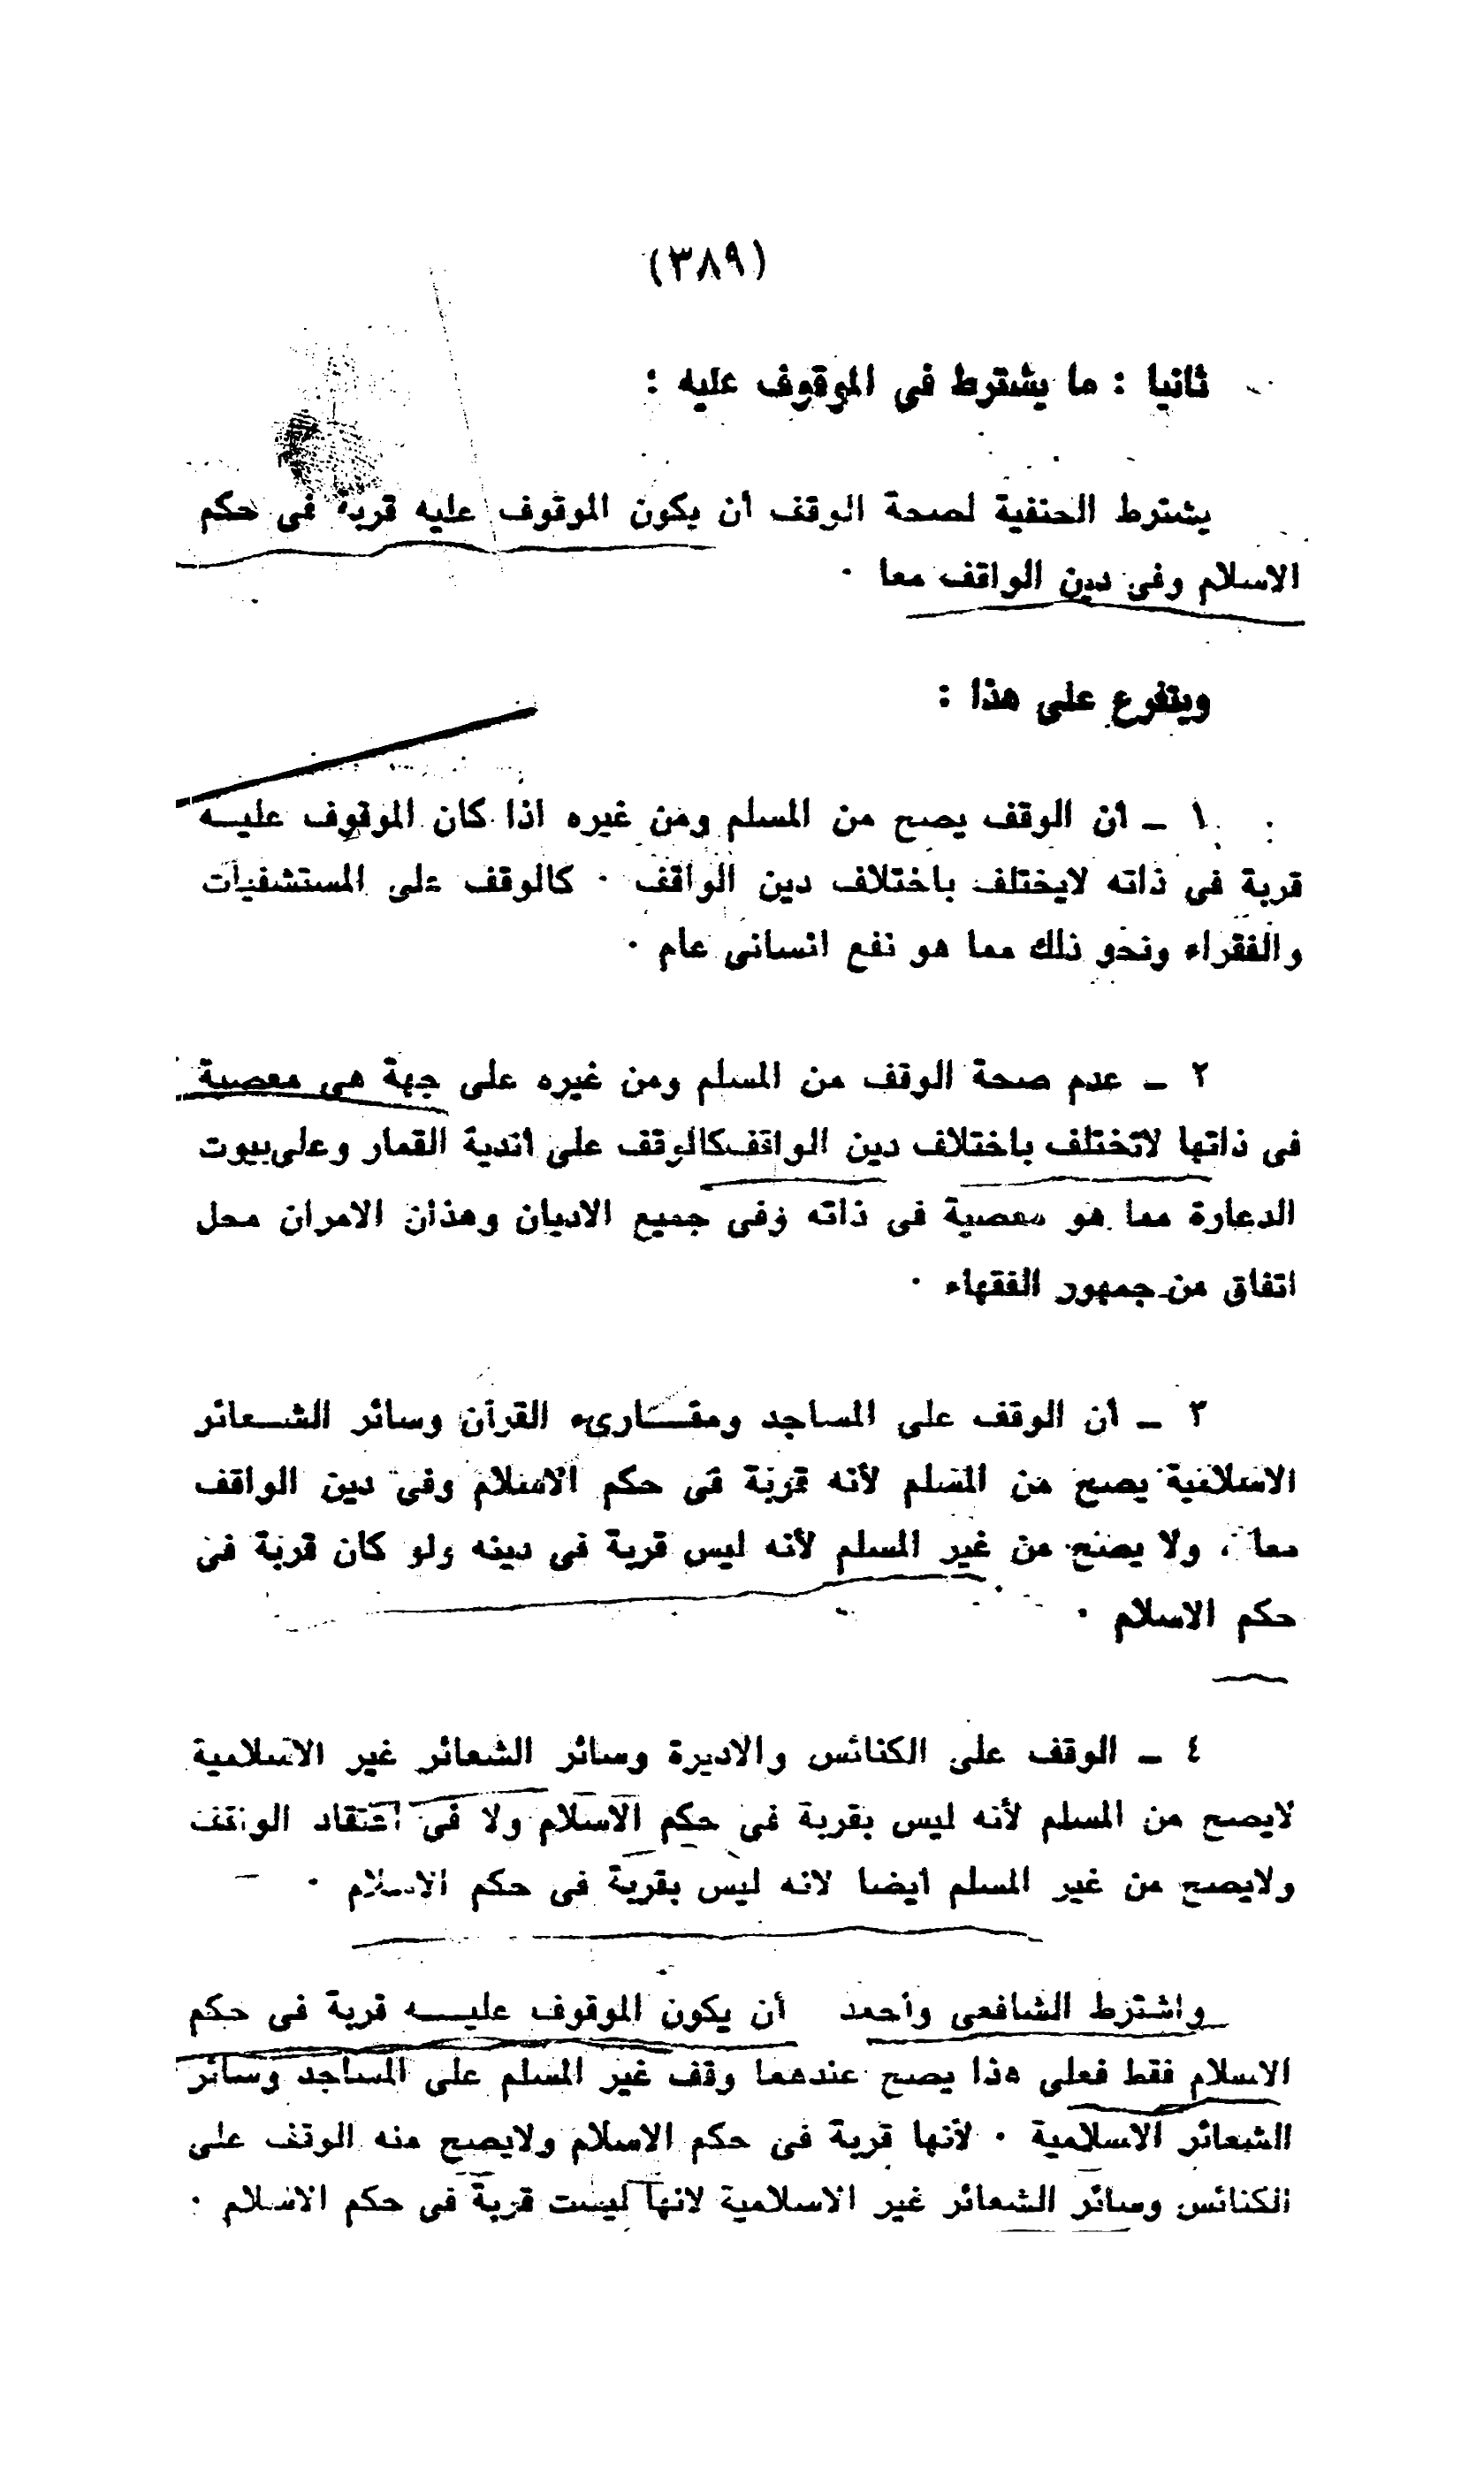 (٣٨٩)
ثانيا : ما يشترط فى الموقوف عليه :
يشترط الحنفية لصحة الوقف أن يكون الموقوف عليه قربة فى حكم
الاسلام وفى دين الواقف معا ٠
ويتفرع على هذا :
١ ـ أن الوقف يصح من المسلم ومن غيره اذا كان الموقوف عليــه
قربة فى ذاته لايختلف باختلاف دين الواقف ٠ كالوقف على المستشفيات
والفقراء ونحو ذلك مما هو نفع انسانى عام ٠
٢ ـ عدم صحة الوقف من المسلم ومن غيره على جهة هى معصية
فى ذاتها لاتختلف باختلاف دين الواقف كالوقف على أندية القمار وعلى بيوت
الدعارة مما هو معصية فى ذاته وفى جميع الاديان وهذان الامران محل
اتفاق من جمهور الفقهاء ٠
٣ ـ أن الوقف على المساجد ومقــارىء القرآن وسائر الشــعائر
الاسلامية يصح من المسلم لأنه قربة فى حكم الاسلام وفى دين الواقف
معا ، ولا يصح من غير المسلم لأنه ليس قربة فى دينه ولو كان قربة فى
حكم الاسلام ٠
٤ ـ الوقف على الكنائس والاديرة وسائر الشعائر غير الاسلامية
لايصح من المسلم لأنه ليس بقربة فى حكم الاسلام ولا فى اعتقاد الواقف
ولايصح من غير المسلم أيضا لانه ليس بقربة فى حكم الاسلام ٠
واشترط الشافعى وأحمد أن يكون الموقوف عليــه قربة فى حكم
الاسلام فقط فعلى هذا يصح عندهما وقف غير المسلم على المساجد وسائر
الشعائر الاسلامية ٠ لأنها قربة فى حكم الاسلام ولايصح منه الوقف على
الكنائس وسائر الشعائر غير الاسلامية لانها ليست قربة فى حكم الاسلام ٠